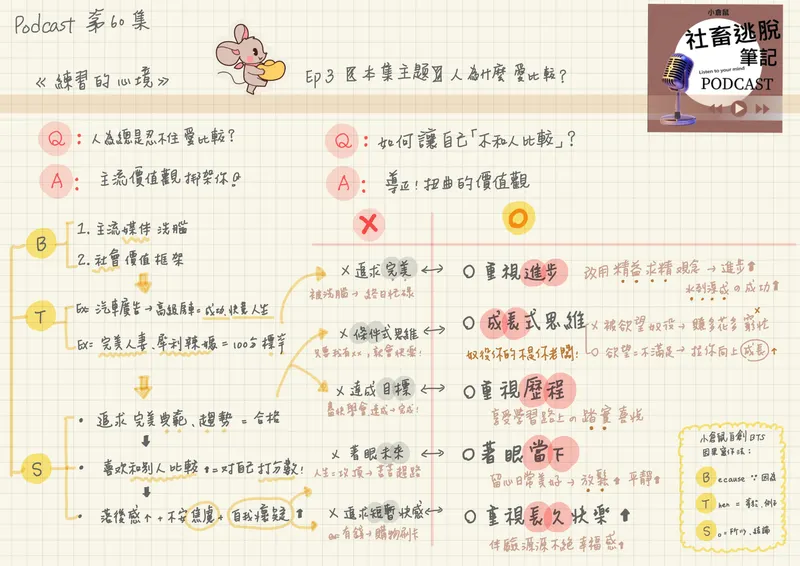 Podcast 第60集
《練習的心境》
Ep3 【本集主題】人為什麼愛比較?
小倉鼠
社畜逃脫
筆記
Listen to your mind
PODCAST
Q:人為總是忍不住愛比較?
A:主流價值觀 綁架你!
Q:如何讓自己「不和人比較」?
A:導正!扭曲的價值觀
B
1. 主流媒体 洗腦
2. 社會價值框架
T
Ex: 汽車廣告→高級房車=成功.快意人生
Ex= 完美人妻.犀利辣媽=100分標竿
S
• 追求 完美典範、趨勢 = 合格
• 喜欢和別人比較↑=对自己打分數!
• 落後感↑+不安焦慮+自我懷疑↑
X
O
×追求完美 ↔ O 重視進步
被洗腦→終日忙碌
改用 精益求精 观念→進步↑
水到渠成の成功↑
×條件式思維 ↔ O 成長式思維
只要我有××,就會快樂!
奴役你的不是你老闆!
×被欲望奴役→賺多花多窮忙
O欲望=不滿足→拉你向上成長↑
×達成目標 ↔ O 重視歷程
盡快學會.達成→完成!
享受學習路上の踏實喜悅
×著眼未來 ↔ O 著眼當下
人生=攻頂→苦苦趕路
留心日常美好→放鬆↑平靜↑
×追求短暫快感 ↔ O 重視長久快樂↑
ex: 有錢→購物刷卡
体驗源源不絕幸福感↑
小倉鼠自創 BTS
因果寫作法:
Because ∵ 因為
Then = 等於、例子
So = 所以、結論